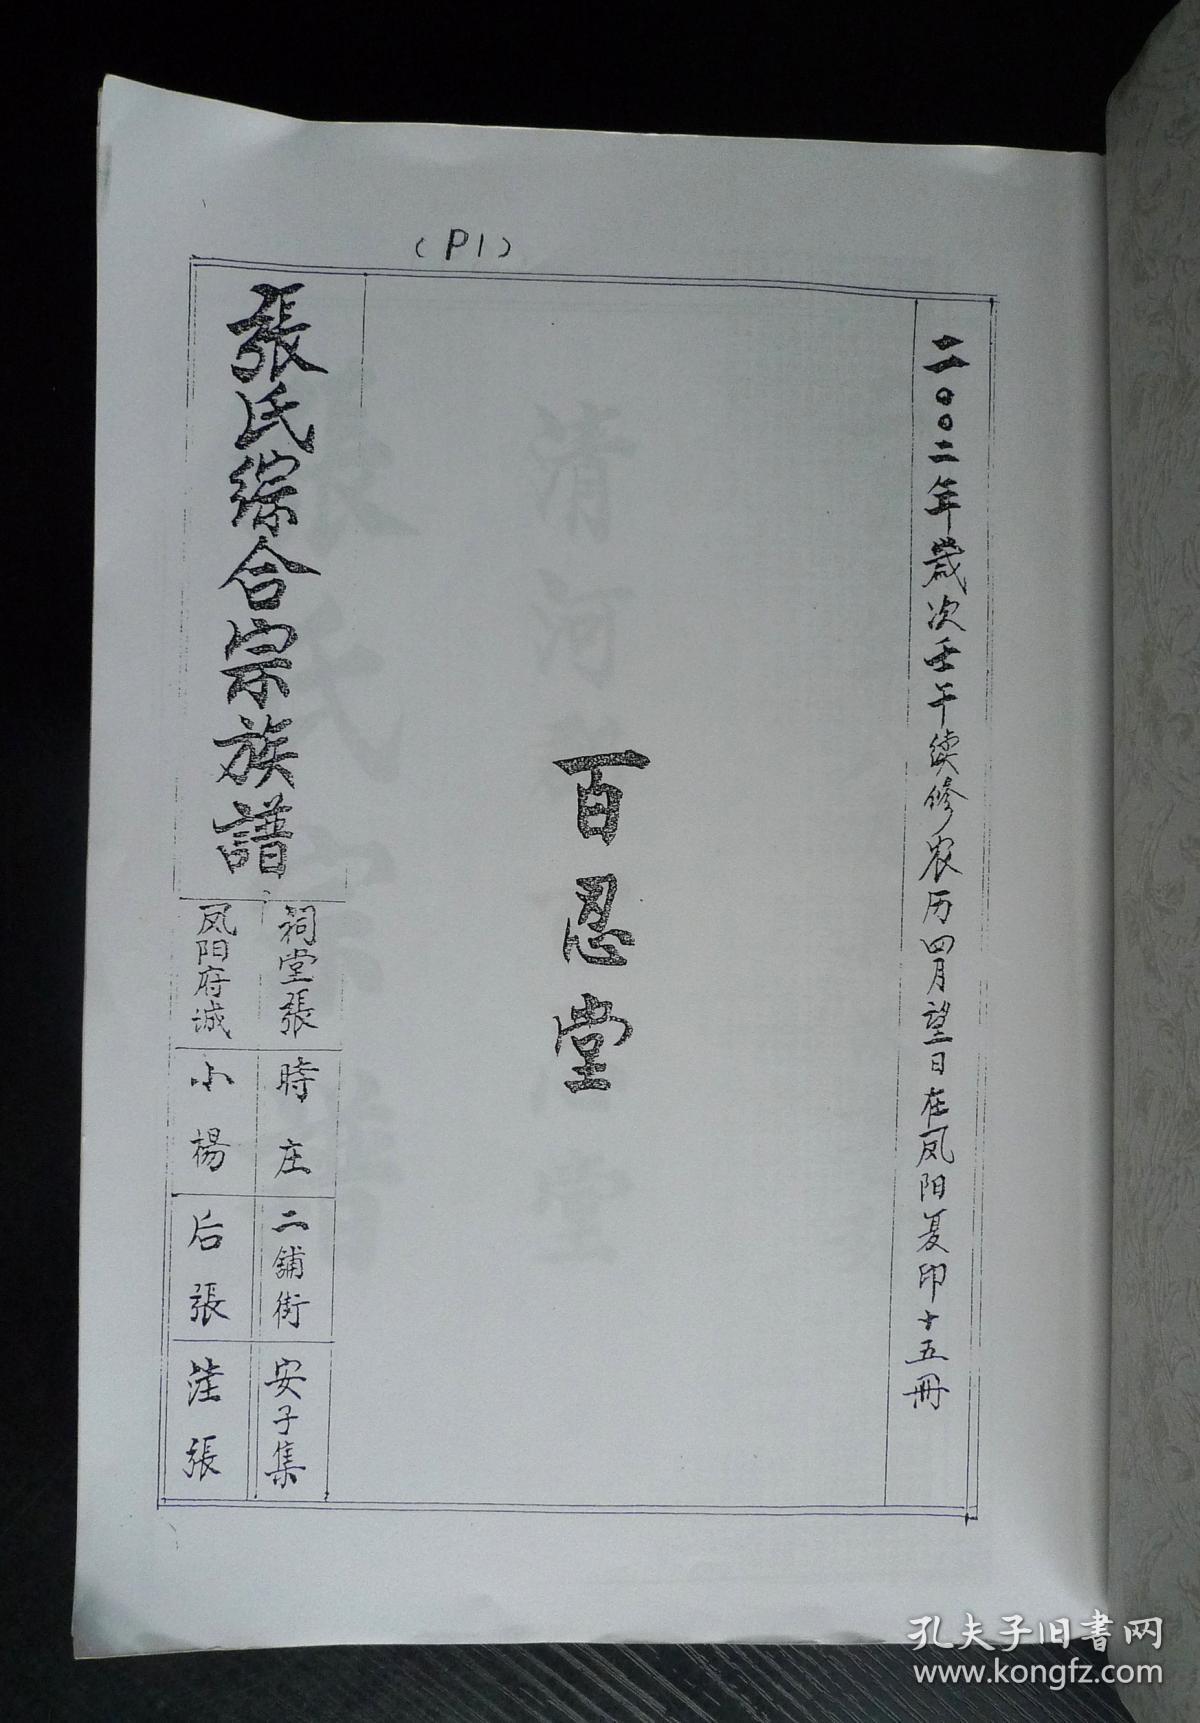 （P1）
二〇〇二年歲次壬午续修农历四月望日在凤阳复印十五冊
百忍堂
張氏综合宗族譜
祠堂張
凤阳府诚
時庄
小楊
二舖街
后張
安子集
洼張
孔夫子旧書网
www.kongfz.com